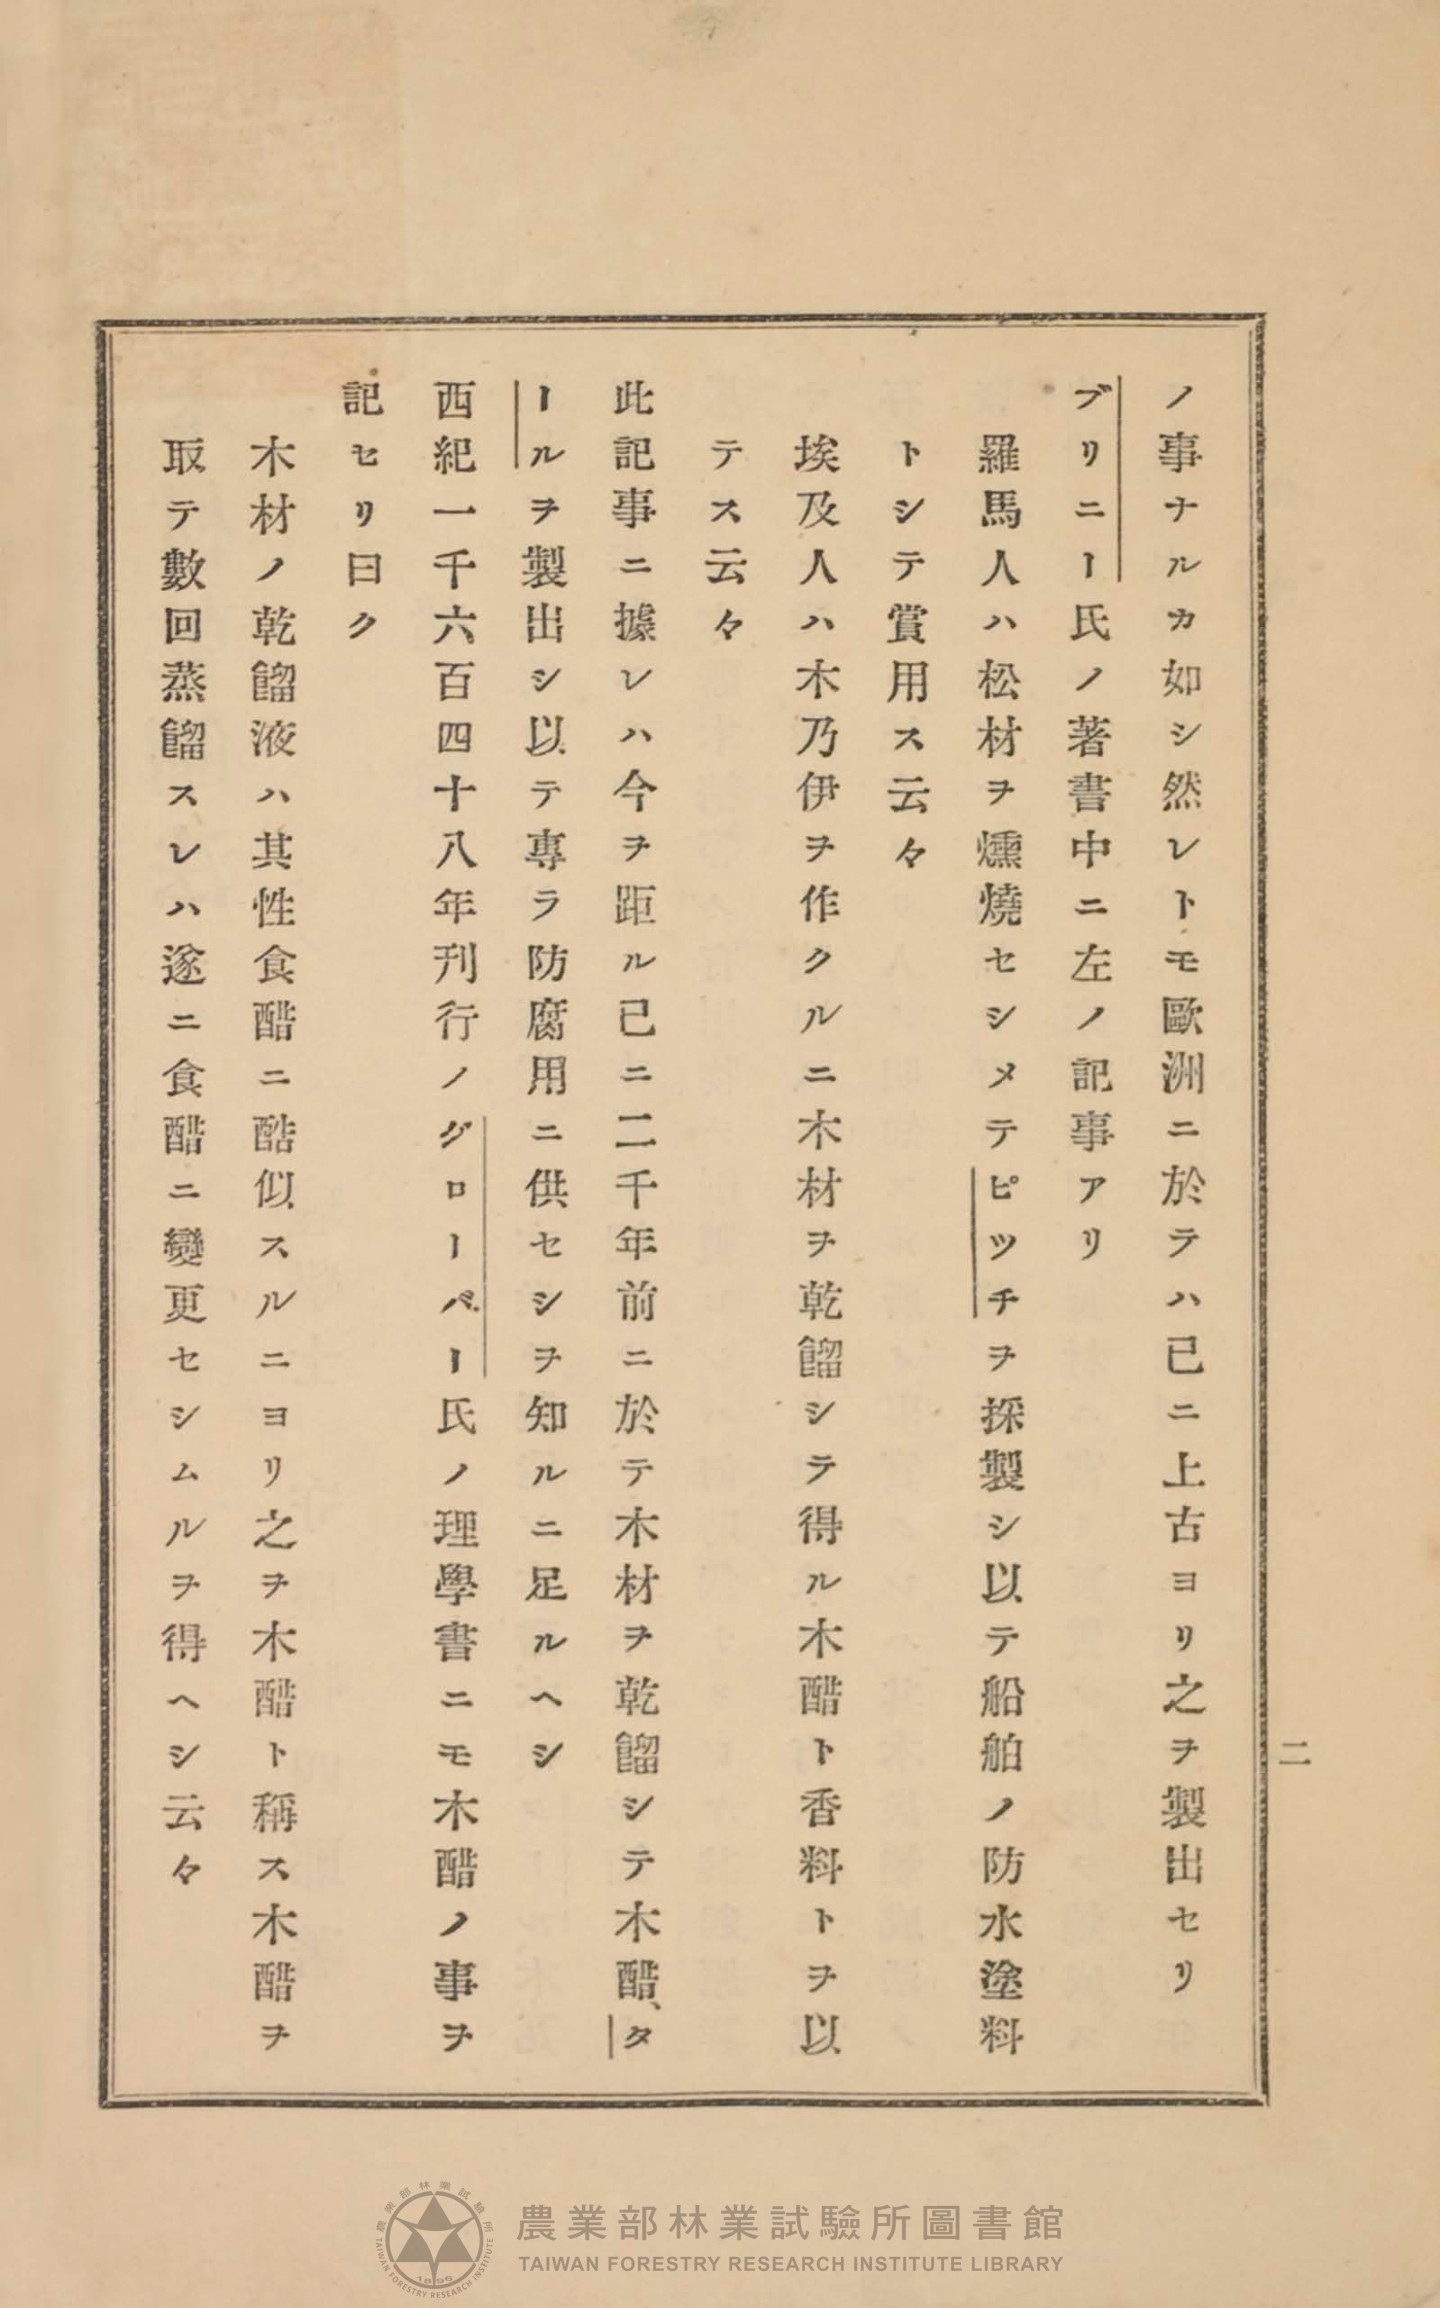 ノ事ナルカ如シ然レトモ歐洲ニ於テハ已ニ上古ヨリ之ヲ製出セリ
プリニー氏ノ著書中ニ左ノ記事アリ
羅馬人ハ松材ヲ燻燒セシメテピツチヲ採製シ以テ船舶ノ防水塗料
トシテ賞用ス云々
埃及人ハ木乃伊ヲ作クルニ木材ヲ乾餾シテ得ル木醋ト香料トヲ以
テス云々
此記事ニ據レハ今ヲ距ル已ニ二千年前ニ於テ木材ヲ乾餾シテ木醋、タ
ールヲ製出シ以テ專ラ防腐用ニ供セシヲ知ルニ足ルヘシ
西紀一千六百四十八年刊行ノグローバー氏ノ理學書ニモ木醋ノ事ヲ
記セリ曰ク
木材ノ乾餾液ハ其性食醋ニ酷似スルニヨリ之ヲ木醋ト稱ス木醋ヲ
取テ數回蒸餾スレハ遂ニ食醋ニ變更セシムルヲ得ヘシ云々
二
農業部林業試驗所圖書館
TAIWAN FORESTRY RESEARCH INSTITUTE LIBRARY
農業部林業試驗所
TAIWAN FORESTRY RESEARCH INSTITUTE
1896